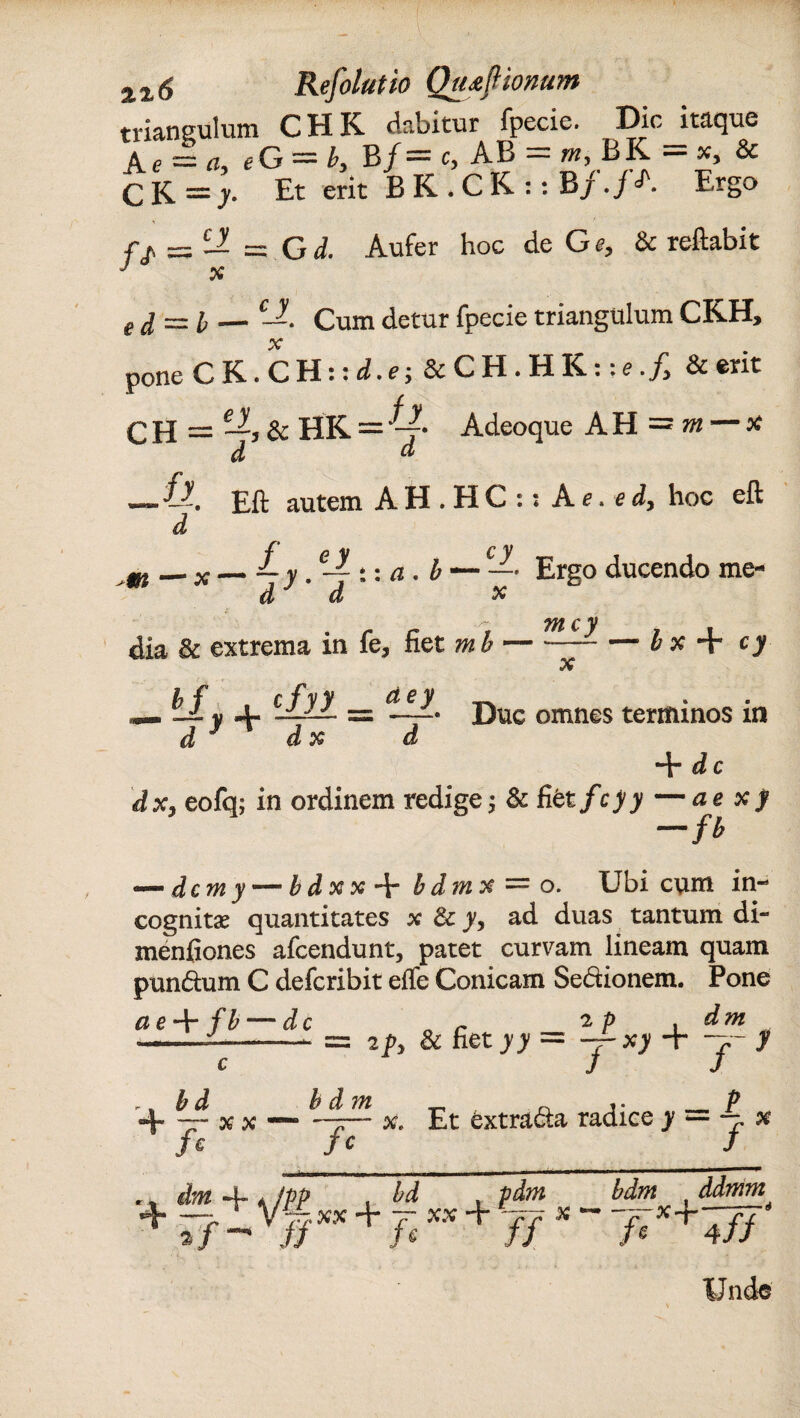 226 Reſolutio Quæſtionum
triangulum CHK dabitur ſpecie. Dic itaque
Ae = a, eG = b, Bf = c, AB = m, BK = x, &
CK = y. Et erit BK . CK :: Bf . fδ. Ergo
fδ = cy/x = Gd. Aufer hoc de Ge, & reſtabit
ed = b — cy/x. Cum detur ſpecie triangulum CKH,
pone CK . CH :: d . e; & CH . HK :: e . f, & erit
CH = ey/d, & HK = fy/d. Adeoque AH = m — x
— fy/d. Eſt autem AH . HC :: Ae . ed, hoc eſt
m — x — f/d y . ey/d :: a . b — cy/x. Ergo ducendo me-
dia & extrema in ſe, fiet mb — mcy/x — bx + cy
— bf/d y + cfyy/dx = aey/d. Duc omnes terminos in
+ dc
dx, eoſq; in ordinem redige; & fiet fcyy — ae xy
— fb
— dcmy — bdxx + bdmx = o. Ubi cum in-
cognitæ quantitates x & y, ad duas tantum di-
menſiones aſcendunt, patet curvam lineam quam
punctum C deſcribit eſſe Conicam Sectionem. Pone
ae + fb — dc/c = 2p, & fiet yy = 2p/f xy + dm/f y
+ bd/fc xx — bdm/fc x. Et extracta radice y = p/f x
+ dm/2f ± √pp/ff xx + bd/fc xx + pdm/ff x — bdm/fc x + ddmm/4ff.
Unde